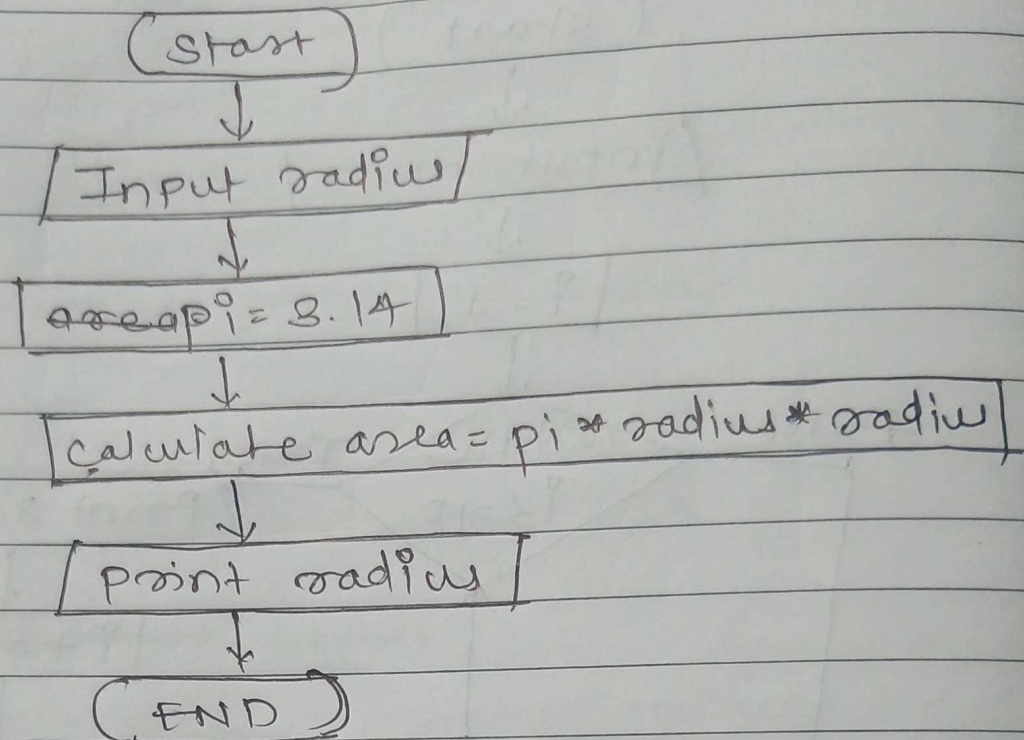 Start
Input radius
pi = 3.14
Calculate area = pi * radius * radius
Print radius
END